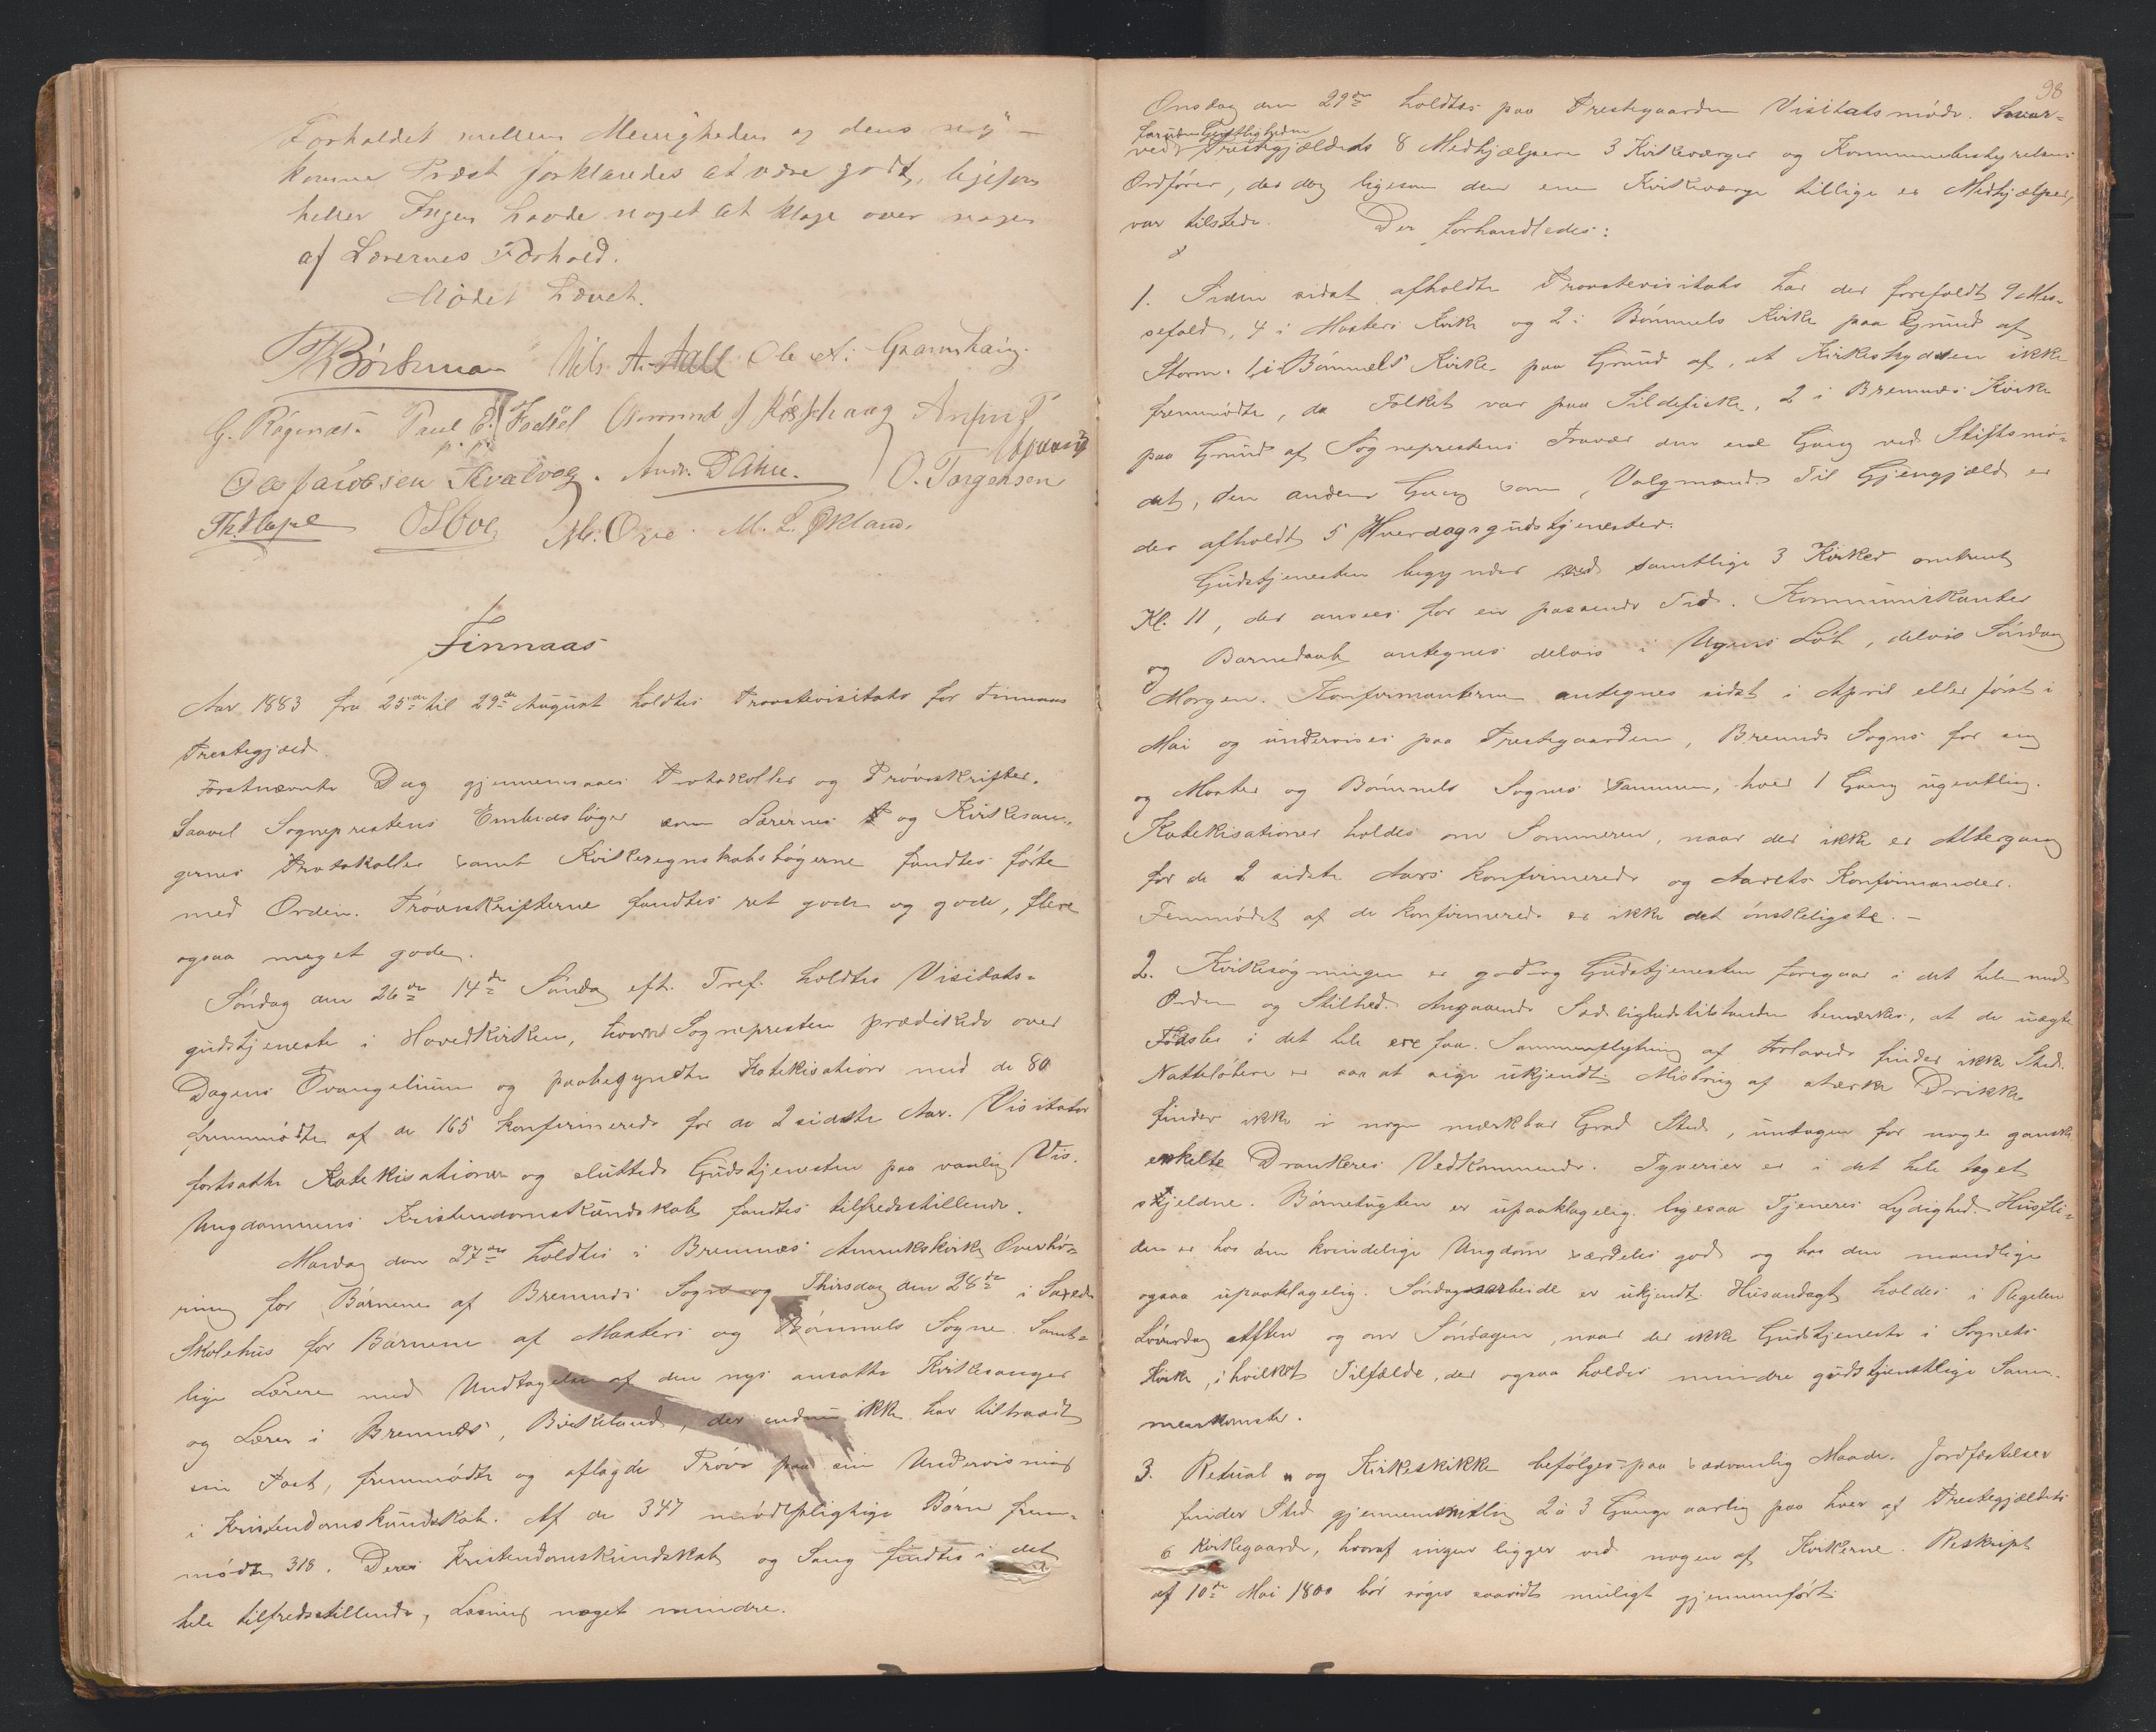 Forholdet mellem Menigheden og dens nye –
komne Præst forklaredes at være godt, ligesom
heller Ingen havde noget at klage over nogen
af Lærernes Forhold.
Mødet hævet.
Nils A. Aall Ole A. Gramshaug.
G. Røgenæs. Paul E. Amund J.
Ole Jacobsen Kvalvog. Andr. Dahle. O. Torgersen
Th. Hope O. Bøe M. L. Økland.
Finnaas
Aar 1883 fra 25de til 29de August holdtes Provstevisitats for Finnaas
Prestegjæld.
Førstnævnte Dag gjennemsaaes Protokoller og Prøveskrifter.
Saavel Sogneprestens Embedsbøger som Lærernes og Kirkesan-
gernes Protokoller samt Kirkeregnskabsbøgerne fandtes førte
med Orden. Prøveskrifterne fandtes ret gode og gode, flere
ogsaa meget gode.
Søndag den 26de 14de Søndag eft. Tref. holdtes Visitats-
gudstjeneste i Hovedkirken, hvorved Sognepresten prædikede over
Dagens Evangelium og paabegyndte Katekisation med de 80
fremmødte af de 165 konfirmerede for de 2 sidste Aar. Visitator
fortsatte Katekisationen og sluttede Gudstjenesten paa vanlig Vis.
Ungdommens Kristendomskundskab fandtes tilfredsstillende.
Mandag den 27de holdtes i Bremnæs Annekskirke Overhø-
ring for Børnene af Bremnæs Sogn og Thirsdag den 28de i
Skolehus for Børnene af Mosters og Bømmels Sogne. Samt-
lige Lærere med Undtagelse af den nys ansatte Kirkesanger
og Lærer i Bremnæs, Birkeland, der endnu ikke har tiltraadt
sin Post, fremmødte og aflagde Prøve paa sin Undervisning
i Kristendomskundskab. Af de 347 mødepligtige Børn frem-
mødte 318. Deres Kristendomskundskab og Sang fandtes i det
hele tilfredsstillende, Læsning noget mindre.
98
Onsdag den 29de holdtes paa Prestegaarden Visitatsmøde. hvor-
foruden Geistligheden
ved Prestegjældets 8 Medhjælpere 3 Kirkeværger og Kommunebestyrelsens
Ordfører, der dog ligesom den ene Kirkeværge tillige er Medhjælper,
var tilstede. Der forhandledes:
1. Siden sidst afholdte Provstevisitats har der forefaldt 9 Mes-
sefald, 4 i Mosters Kirke og 2 i Bømmels Kirke paa Grund af
Storm. 1 i Bømmels Kirke paa Grund af, at Kirkeskydsen ikke
fremmødte, da Folket var paa Sildefiske, 2 i Bremnæs Kirke
paa Grund af Sogneprestens Fravær den ene Gang ved Stiftsmø-
det, den anden Gang som Valgmand. Til Gjengjæld er
der afholdt 5 Hverdagsgudstjenester.
Gudstjenesten begynder ved samtlige 3 Kirker omtrent
Kl. 11, der ansees for en passende Tid. Kommunikanter
og Barnedaab antegnes delvis i Ugens Løb, delvis Søndag
Morgen. Konfirmanterne antegnes sidst i April eller først i
Mai og undervises paa Prestegaarden, Bremnæs Sogns for sig
og Moster og Bømmels Sognes sammen, hver 1 Gang ugentlig.
Katekisationer holdes om Sommeren, naar der ikke er Altergang
for de 2 sidste Aars konfirmerede og Aarets Konfirmander.
Femmødet af de konfirmerede er ikke det ønskeligste. –
2. Kirkesøgningen er god og Gudstjenesten foregaar i det hele med
Orden og Stilhed. Angaaende Sædelighedstilstanden bemærkes, at de uægte
Fødsler i det hele ere faa. Sammenflytning af Forlovede finder ikke Sted.
Natteløberi er saa at sige ukjendt. Misbrug af stærke Drikke
finder ikke i nogen mærkbar Grad Sted, untagen for nogle ganske
enkelte Drankeres Vedkommende. Tyverier er i det hele taget
skjeldne. Børnetugten er upaaklagelig, ligesaa Tjeneres Lydighed. Husfli-
den er hos den kvindelige Ungdom særdeles god og hos den mandlige
ogsaa upaaklagelig. Søndagsarbeide er ukjendt. Husandagt holdes i Regelen
Løverdag Aften og om Søndagen, naar der ikke Gudstjeneste i Sognets
Kirke, i hvilket Tilfælde, der ogsaa holdes mindre gudstjenstlige Sam-
menkomster.
3. Ritual og Kirkeskikke befølges paa sædvanlig Maade. Jordfæstelser
finder Sted gjennemsnitlig 2 à 3 Gange aarlig paa hver af Prestegjældets
6 Kirkegaarde, hvoraf ingen ligger ved nogen af Kirkerne. Reskript
af 10de Mai 1800 bør søges saavidt muligt gjennemført.